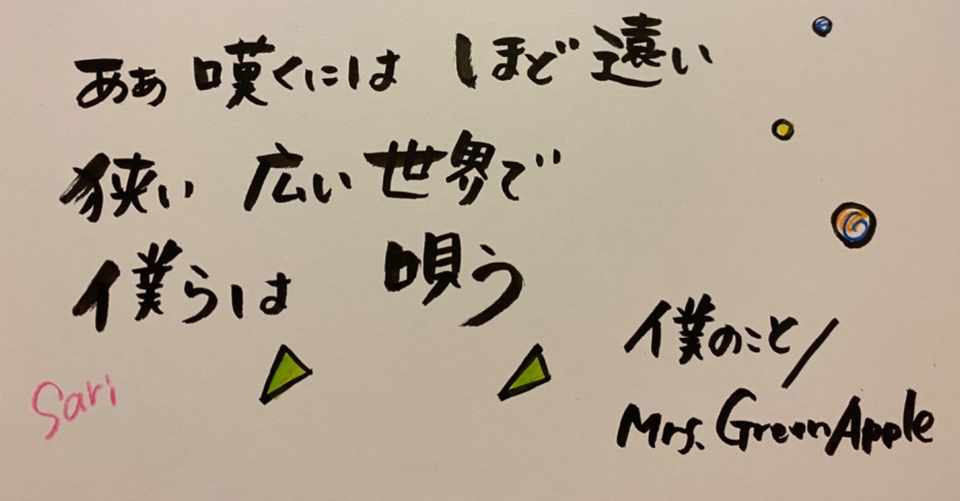 ああ 嘆くには しほど遠い
狭い 広い世界で
僕らは 唄う
僕のこと/
Mrs. GreenApple
Sari